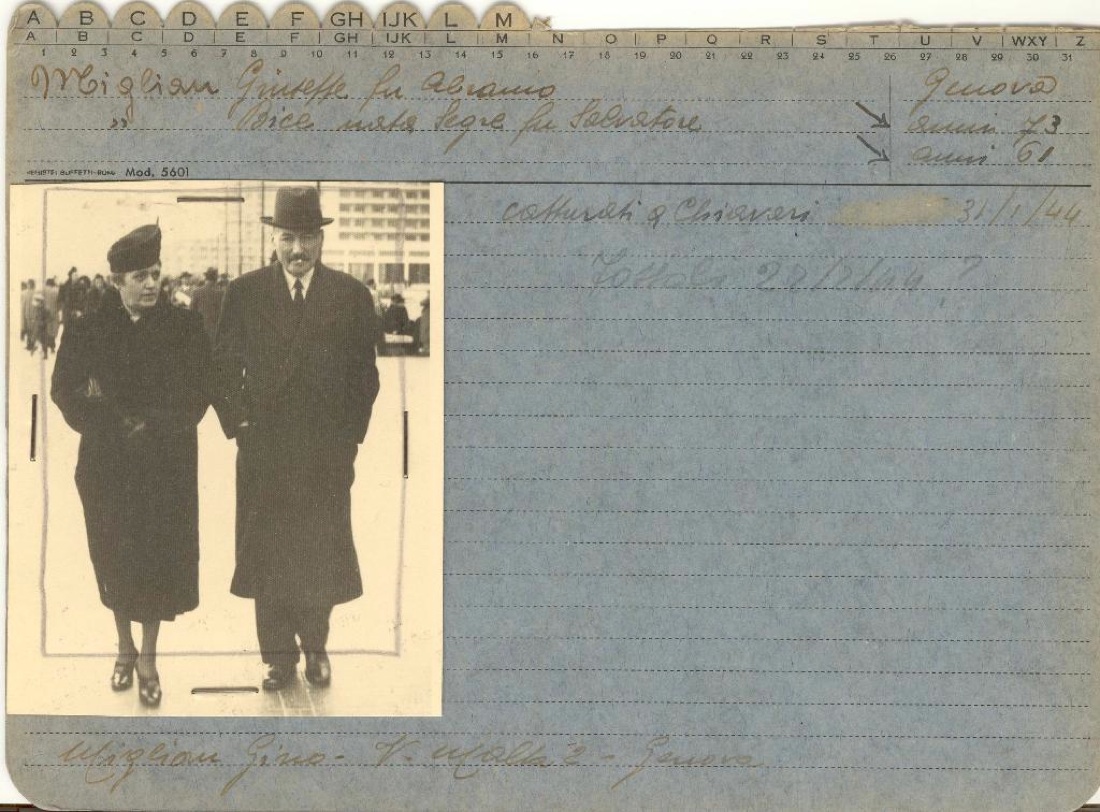 A B C D E F GH IJK L M
A B C D E F GH IJK L M N O P Q R S T U V WXY Z
1 2 3 4 5 6 7 8 9 10 11 12 13 14 15 16 17 18 19 20 21 22 23 24 25 26 27 28 29 30 31
Miglian Giuseppe fu Abramo Genova
" Bice nata Segre fu Salvatore anni 73
anni 61
Mod. 5601
catturati a Chiavari 31/1/44
Fossoli ?
Miglian Gino - V. Malta 2 - Genova